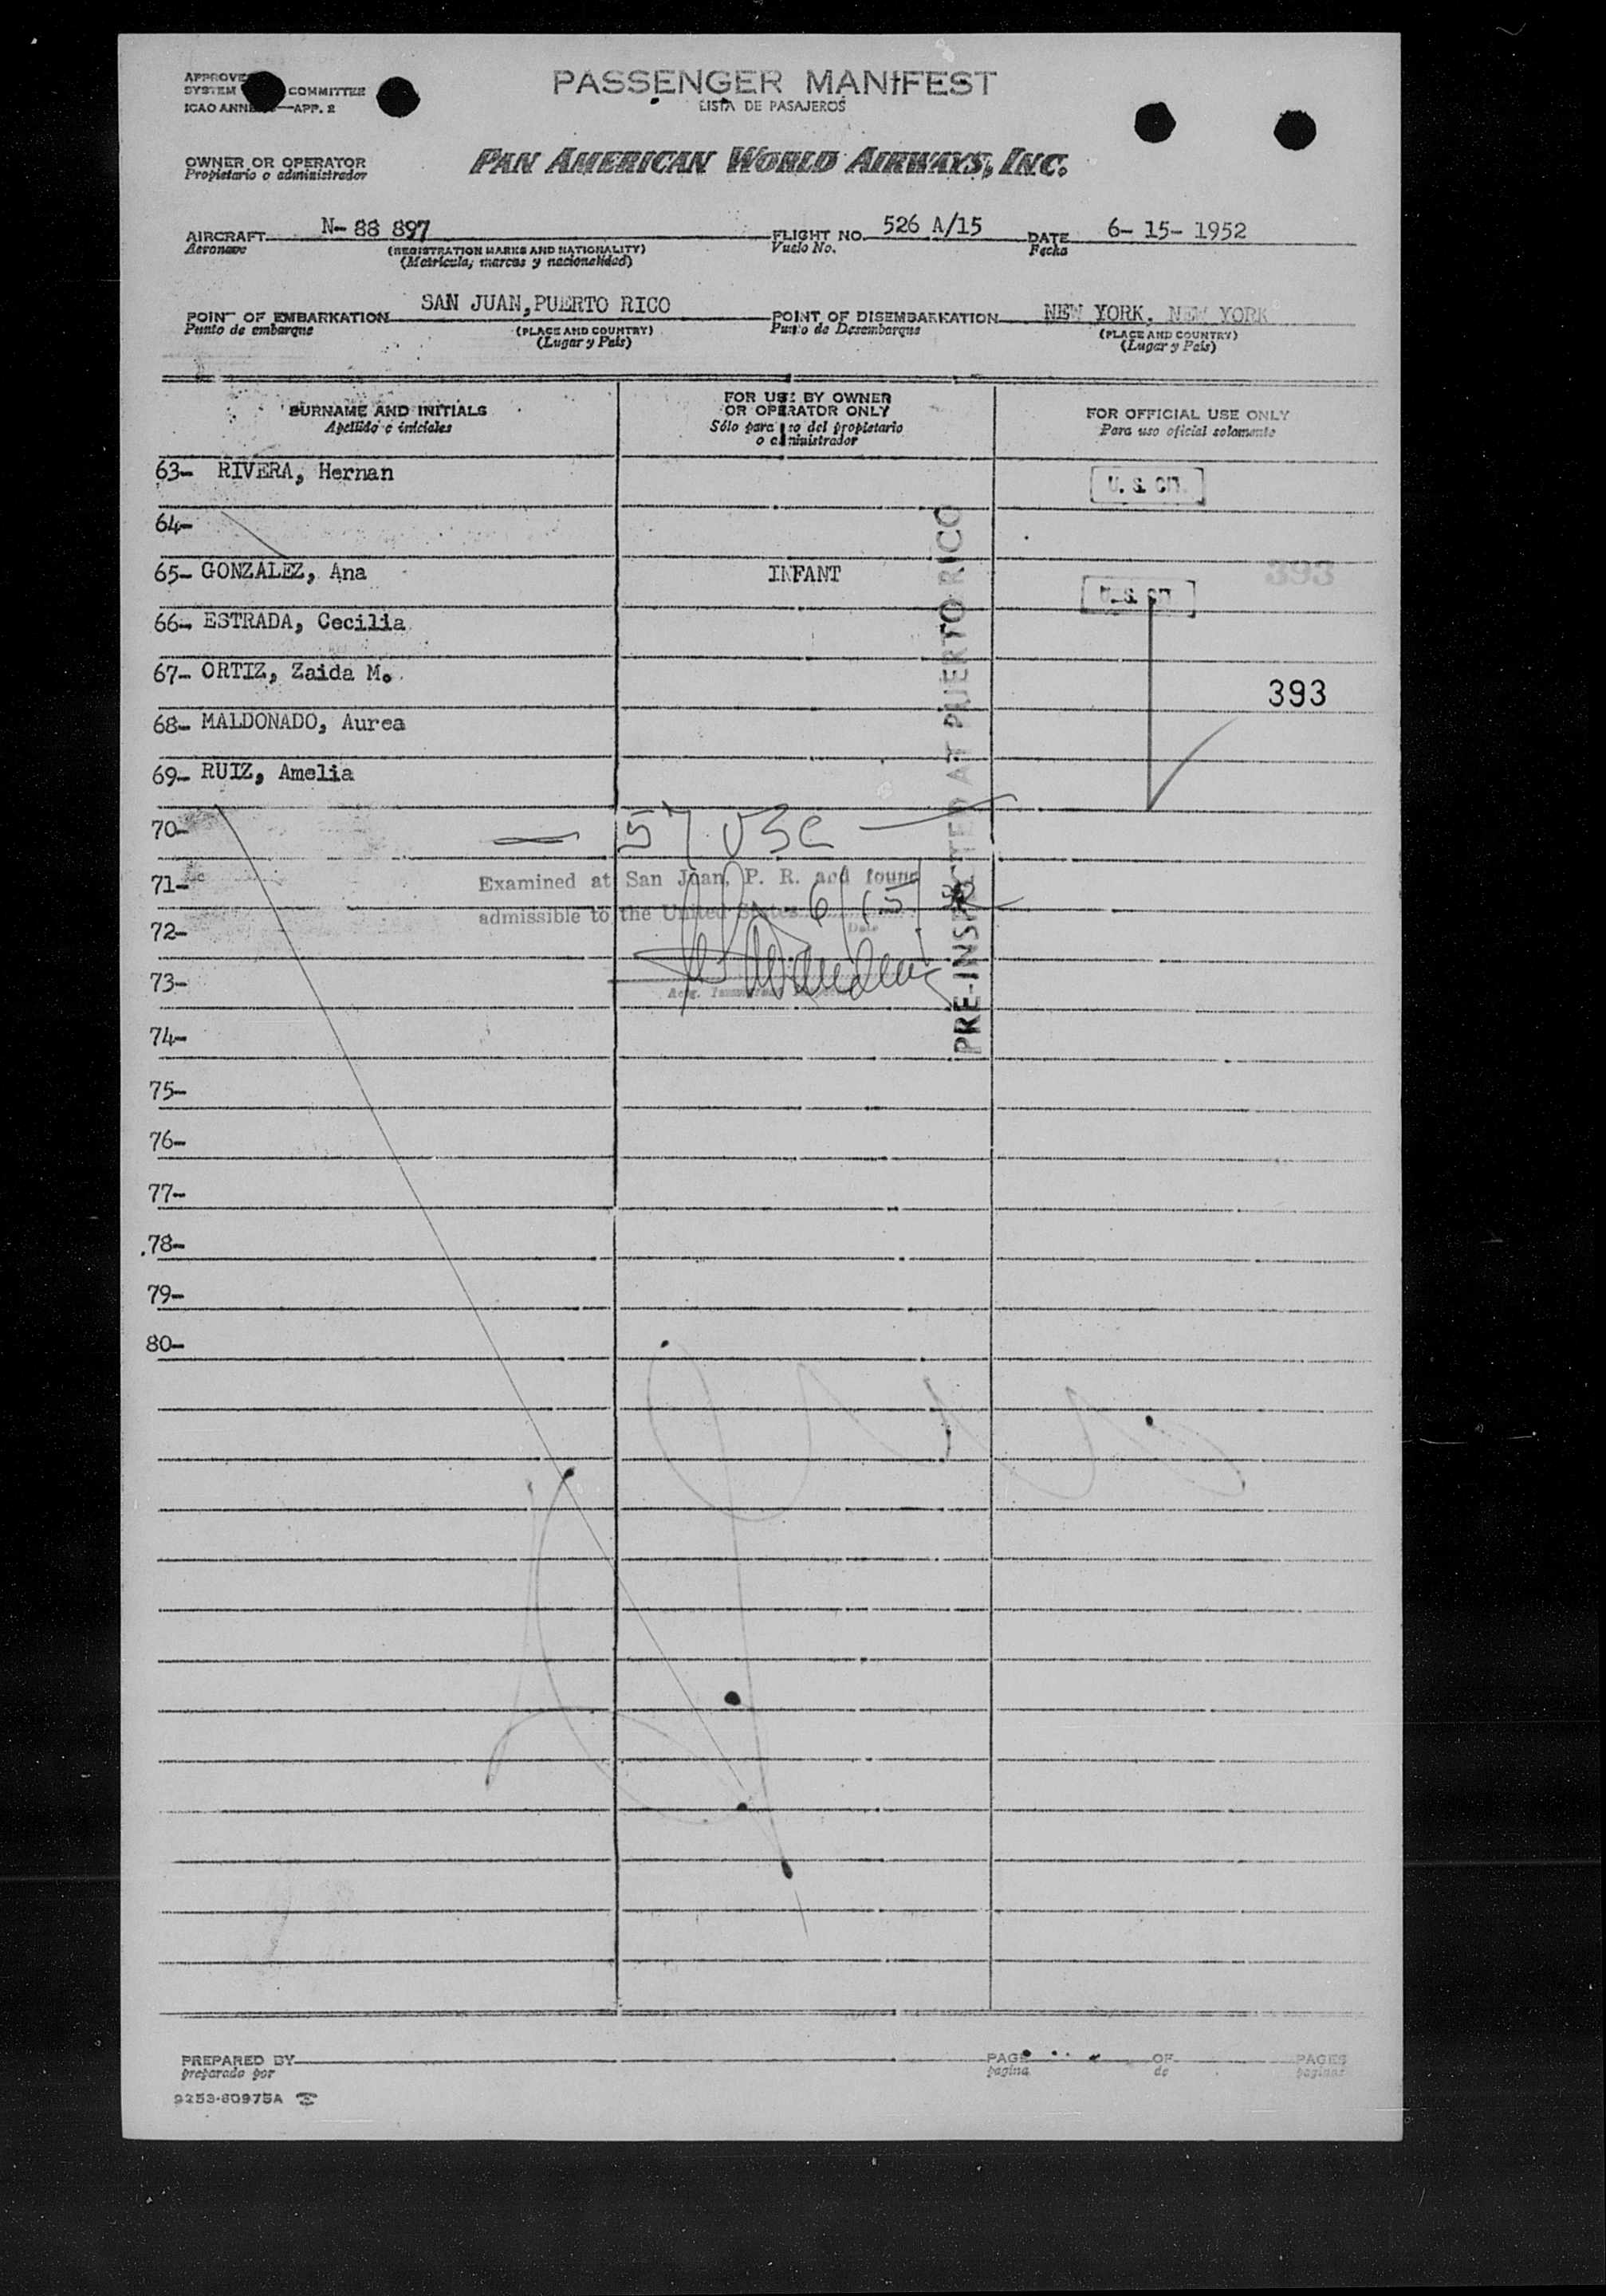 PASSENGER MANIFEST
LISTA DE PASAJEROS
SYSTEM COMMITTEE
APP. 2
OWNER OR OPERATOR
Propietario o administrador
PAN AMERICAN WORLD AIRWAYS, INC.
AIRCRAFT N-88 897 FLIGHT NO. 526 A/15 DATE 6-15-1952
Aeronave (REGISTRATION MARKS AND NATIONALITY) Vuelo No. Fecha
(Matricula, marcas y nacionalidad)
POINT OF EMBARKATION SAN JUAN, PUERTO RICO POINT OF DISEMBARKATION NEW YORK, NEW YORK
Punto de embarque (PLACE AND COUNTRY) Punto de Desembarque (PLACE AND COUNTRY)
(Lugar y País) (Lugar y País)
SURNAME AND INITIALS FOR USE BY OWNER OR OPERATOR ONLY FOR OFFICIAL USE ONLY
Apellido e iniciales Sólo para uso del propietario o administrador Para uso oficial solamente
63- RIVERA, Hernan U. S. CIT.
64-
65- GONZALEZ, Ana INFANT 393
U. S. CIT
66- ESTRADA, Cecilia
67- ORTIZ, Zaida M. 393
68- MALDONADO, Aurea
69- RUIZ, Amelia
70- 57 USC
71- Examined at San Juan, P. R. and found
admissible to the United States 6/15/
Date
72-
73-
74-
PRE-INSPECTED AT PUERTO RICO
75-
76-
77-
78-
79-
80-
PREPARED BY PAGE OF PAGES
preparado por pagina de paginas
9253-60975A